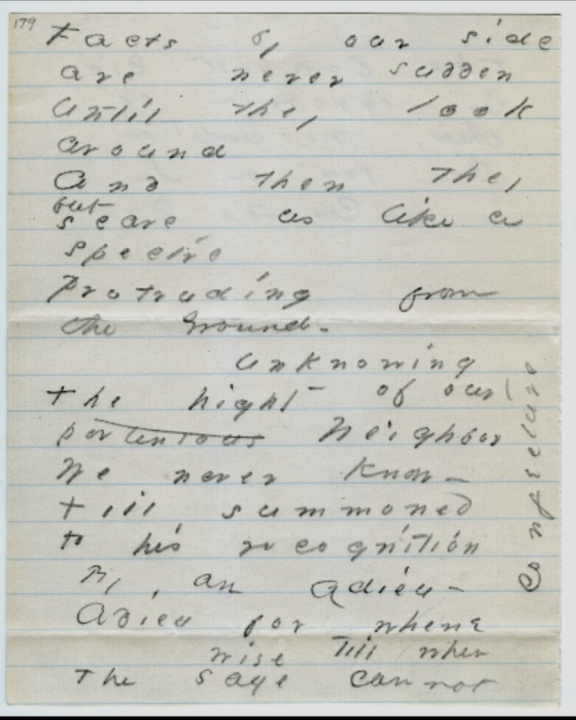 179
Facts by our side
are never sudden
until they look
around
And then they
but
scare us like a
spectre
Protruding from
the Ground -
unknowing
the hight of our
portentous Neighbor
We never know -
till summoned
to his recognition
By an Adieu -
Adieu for whence
wise Till when
The sage cannot
Conjecture